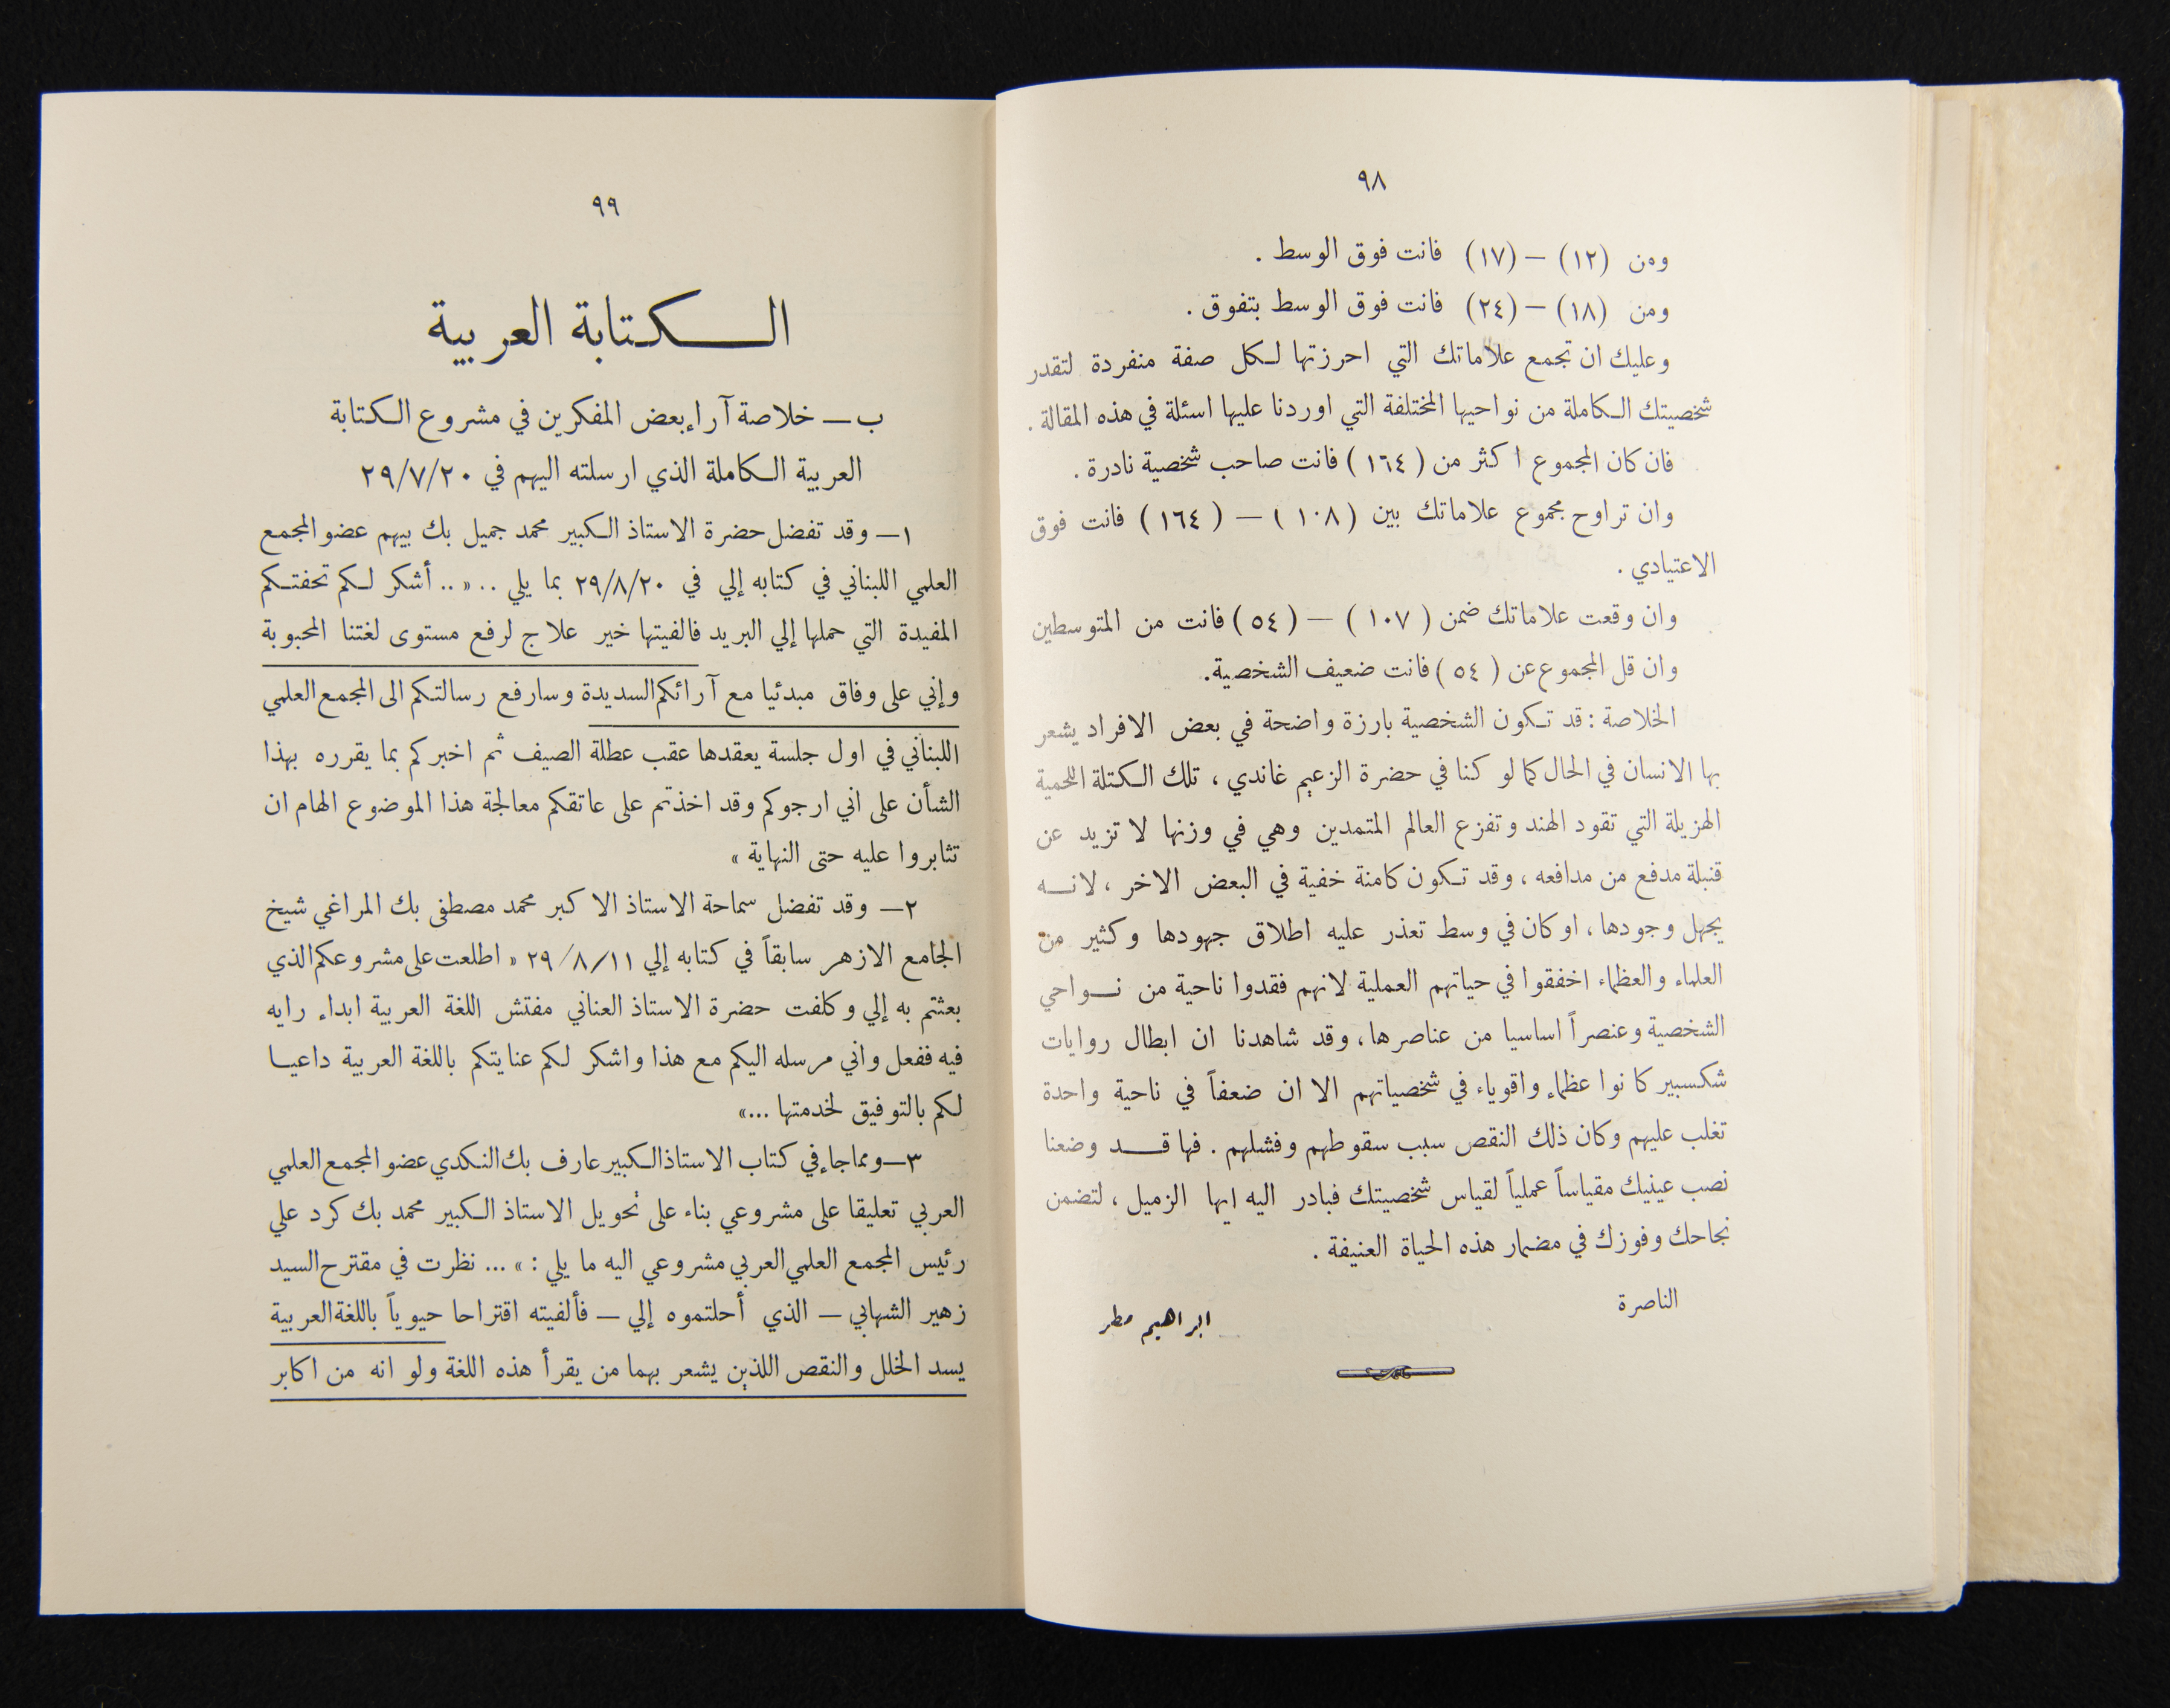 ٩٨
ومن (١٢) — (١٧) فانت فوق الوسط .
ومن (١٨) — (٢٤) فانت فوق الوسط بتفوق .
وعليك ان تجمع علاماتك التي احرزتها لكل صفة منفردة لتقدر
شخصيتك الكاملة من نواحيها المختلفة التي اوردنا عليها اسئلة في هذه المقالة .
فان كان المجموع اكثر من ( ١٦٤ ) فانت صاحب شخصية نادرة .
وان تراوح مجموع علاماتك بين ( ١٠٨ ) — ( ١٦٤ ) فانت فوق
الاعتيادي .
وان وقعت علاماتك ضمن ( ١٠٧ ) — ( ٥٤ ) فانت من المتوسطين
وان قل المجموع عن ( ٥٤ ) فانت ضعيف الشخصية .
الخلاصة : قد تكون الشخصية بارزة واضحة في بعض الافراد يشعر
بها الانسان في الحال كما لو كنا في حضرة الزعيم غاندي ، تلك الكتلة اللحمية
الهزيلة التي تقود الهند وتفزع العالم المتمدين وهي في وزنها لا تزيد عن
قنبلة مدفع من مدافعه ، وقد تكون كامنة خفية في البعض الاخر ، لانه
يجهل وجودها ، او كان في وسط تعذر عليه اطلاق جهودها وكثير من
العلماء والعظماء اخفقوا في حياتهم العملية لانهم فقدوا ناحية من نواحي
الشخصية وعنصراً اساسيا من عناصرها ، وقد شاهدنا ان ابطال روايات
شكسبير كانوا عظماء واقوياء في شخصياتهم الا ان ضعفاً في ناحية واحدة
تغلب عليهم وكان ذلك النقص سبب سقوطهم وفشلهم . فها قد وضعنا
نصب عينيك مقياساً عملياً لقياس شخصيتك فبادر اليه ايها الزميل ، لتضمن
نجاحك وفوزك في مضمار هذه الحياة العنيفة .
الناصرة
ابراهيم مطر
٩٩
الكتابة العربية
ب — خلاصة آراء بعض المفكرين في مشروع الكتابة
العربية الكاملة الذي ارسلته اليهم في ٢٩/٧/٢٠
١ — وقد تفضل حضرة الاستاذ الكبير محمد جميل بك بيهم عضو المجمع
العلمي اللبناني في كتابه إلي في ٢٩/٨/٢٠ بما يلي .. « .. أشكر لكم تحفتكم
المفيدة التي حملها إلي البريد فالفيتها خير علاج لرفع مستوى لغتنا المحبوبة
وإني على وفاق مبدئيا مع آرائكم السديدة وسارفع رسالتكم الى المجمع العلمي
اللبناني في اول جلسة يعقدها عقب عطلة الصيف ثم اخبركم بما يقرره بهذا
الشأن على اني ارجوكم وقد اخذتم على عاتقكم معالجة هذا الموضوع الهام ان
تثابروا عليه حتى النهاية »
٢ — وقد تفضل سماحة الاستاذ الاكبر محمد مصطفى بك المراغي شيخ
الجامع الازهر سابقاً في كتابه إلي ٢٩/٨/١١ « اطلعت على مشروعكم الذي
بعثتم به إلي وكلفت حضرة الاستاذ العناني مفتش اللغة العربية ابداء رايه
فيه ففعل واني مرسله اليكم مع هذا واشكر لكم عنايتكم باللغة العربية داعيا
لكم بالتوفيق لخدمتها ... »
٣ — ومما جاء في كتاب الاستاذ الكبير عارف بك النكدي عضو المجمع العلمي
العربي تعليقا على مشروعي بناء على تحويل الاستاذ الكبير محمد بك كرد علي
رئيس المجمع العلمي العربي مشروعي اليه ما يلي : » ... نظرت في مقترح السيد
زهير الشهابي — الذي أحلتموه إلي — فألفيته اقتراحا حيوياً باللغة العربية
يسد الخلل والنقص اللذين يشعر بهما من يقرأ هذه اللغة ولو انه من اكابر